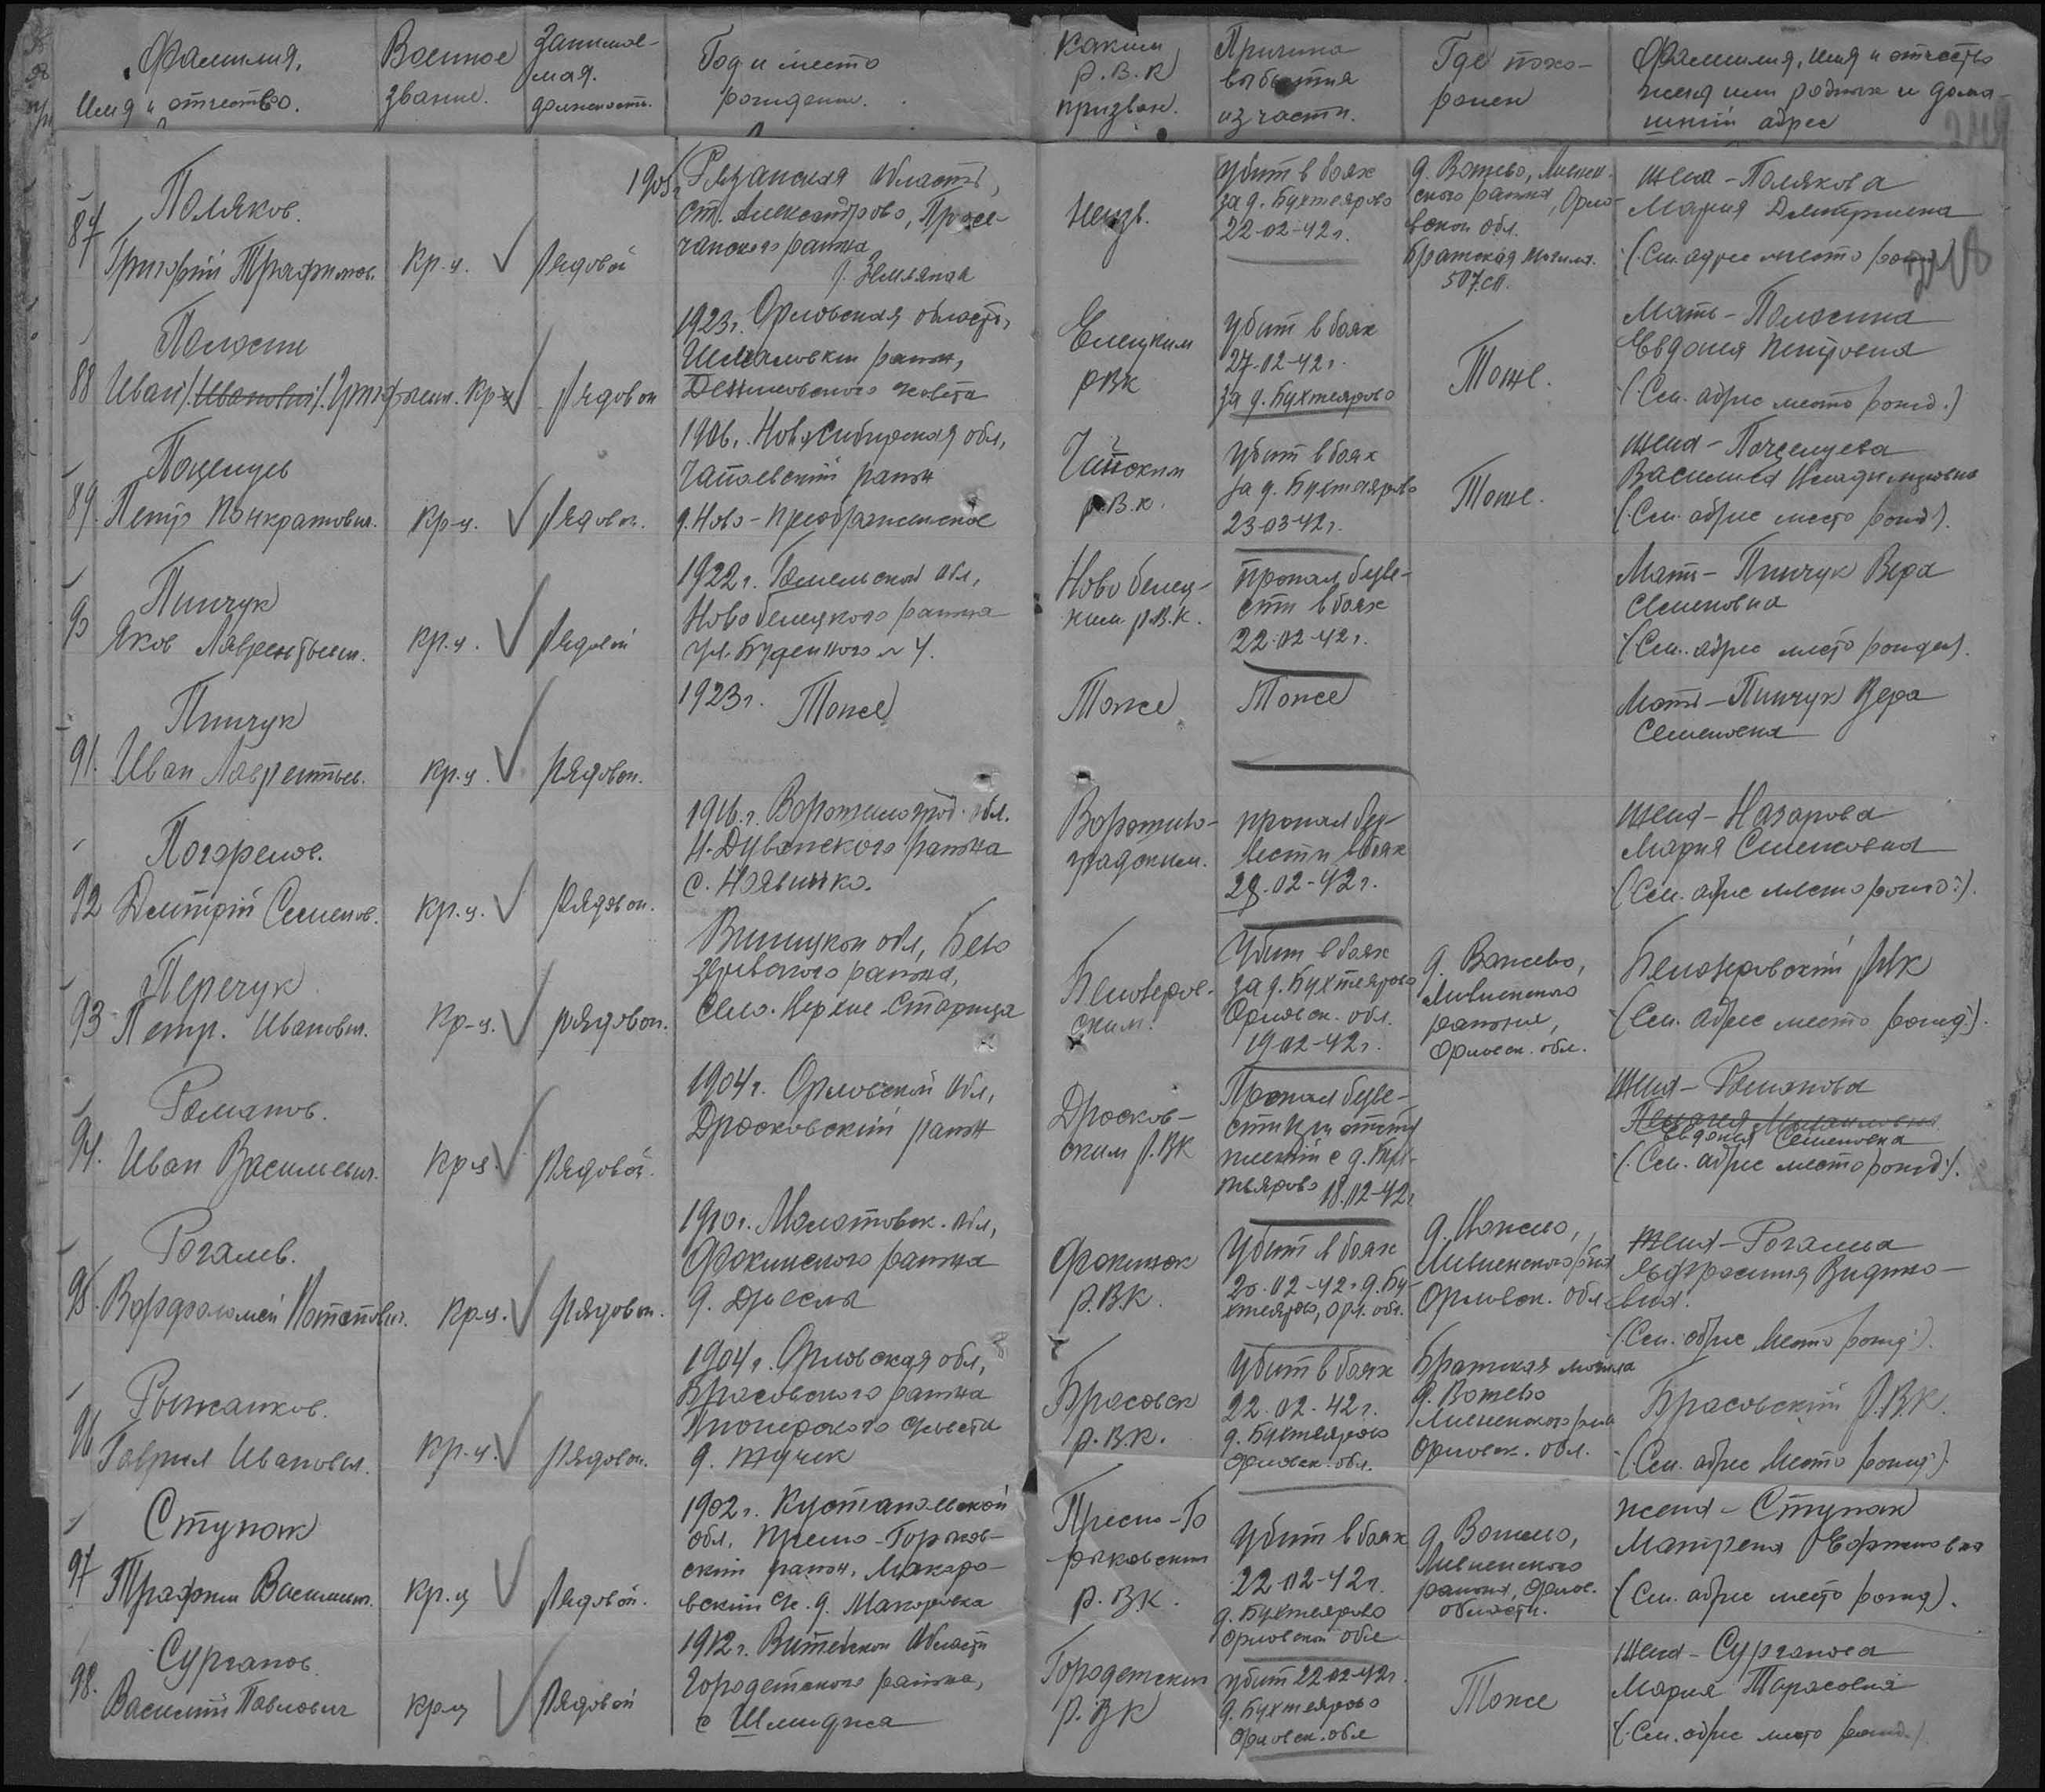 Фамилия,
Имя и отчество.
Военное
звание.
Занимае-
мая
должность.
Год и место
рождения.
Каким
Р.В.К
призван.
Причина
выбытия
из части.
Где похо-
ронен
Фамилия, имя и отчество
жены или родных и дома-
шний адрес
87
Поляков.
Григорий Трафимов.
Кр-ц.
Рядовой
1905г. Рязанская область,
ст. Александрово,
района
Неизв.
Убит в боях
за д. Бухтеярово
22-02-42г.
д. Вожево, Ливен-
ского района, Орло-
вской обл.
братская могила.
507 СП.
жена - Полякова
Мария Дмитриевна
(См. адрес место рожд.)
88
Полосин
Иван /Иванович/ Григорьев.
Кр-ц
Рядовой
1923г. Орловская область,
район,
совета
Елецким
РВК
Убит в боях
27-02-42г.
за д. Бухтеярово
Тоже.
Мать - Полосина
Евдокия Петровна
(См. адрес место рожд.)
89.
Поцелуев
Петр Понкратович.
Кр-ц.
Рядовой.
1906г. Новосибирская обл,
район
д. Ново-Преображенское
р.В.К.
Убит в боях
за д. Бухтеярово
23-03-42г.
Тоже.
жена - Поцелуева
Василиса
(См. адрес место рожд.).
90
Пинчук
Яков Лаврентьев.
Кр-ц.
Рядовой
1922г. Гомельской обл,
Новобелецкого района
ул. Буденного № 4.
Новобелец-
ким Р.В.К.
Пропал безве-
сти в боях
22-02-42г.
Мать - Пинчук Вера
Семеновна
(См. адрес место рожден).
91.
Пинчук
Иван Лаврентьев.
Кр-ц.
Рядовой.
1923г. Тоже
Тоже
Тоже
Мать - Пинчук Вера
Семеновна
92
Погорелов.
Дмитрий Семенов.
Кр-ц.
Рядовой.
1916г. Ворошиловград. обл.
Н-Дуванского района
с.
Ворошило-
градским.
Пропал без-
вести в боях
28-02-42г.
жена - Назарова
Мария Семеновна
(См. адрес место рожд.).
93
Перечук
Петр. Иванович.
Кр-ц.
Рядовой.
Виницкой обл, Бело-
района,
Село.
Убит в боях
за д. Бухтеярово
Орловск. обл.
19-02-42г.
д. Вожево,
Ливненского
района,
Орловск. обл.
РВК
(См. адрес место рожд.).
94.
Романов.
Иван Васильевич.
Кр-ц.
Рядовой.
1904г. Орловской обл,
Дросковский район
Дросков-
ским Р.ВК
Пропал безве-
сти
с д. Бух-
теярово 18.02-42г
Жена - Романова
Евдокия Семеновна
(См. адрес место рожд.).
95.
Рогалев.
Варфоломей Потапович.
Кр-ц.
Рядовой.
1910г. Молотовск. обл,
Фокинского района
д.
Фокинск
р.ВК.
Убит в боях
20-02-42г д. Бу-
хтеярово, Орл. обл.
д. Вожево,
Ливненского р-на
Орловск. обл.
Жена - Рогалева
(См. адрес место рожд.).
96
Рыжанков.
Гаврил Иванович.
Кр-ц.
Рядовой.
1904г. Орловская обл,
Брасовского района
совета
д.
Брасовск
р.ВК.
Убит в боях
22-02-42г.
д. Бухтеярово
Орловск. обл.
Братская могила
д. Вожево
Ливненского р-на
Орловск. обл.
Брасовский Р.В.К.
(См. адрес место рожд.).
97
Ступак
Трафим Васильев.
Кр-ц
Рядовой.
1902г. Кустанайской
обл. Пресно-Горьков-
ский район, Макаро-
вский с/с. д. Макаровка
Пресно-Го-
рьковским
р.ВК.
Убит в боях
22-02-42г.
д. Бухтеярово
Орловской обл
д. Вожево,
Ливненского
района, Орлов.
области.
жена - Ступак
Матрена
(См. адрес место рожд).
98.
Сурганов.
Василий Павлович
Кр-ц
Рядовой
1912г. Витебской области
Городетского района,
с
Городетским
Р.ВК
Убит 22-02-42г.
д. Бухтеярово
Орловск. обл
Тоже
Жена - Сурганова
Мария Тарасовна
(См. адрес место рожд.)